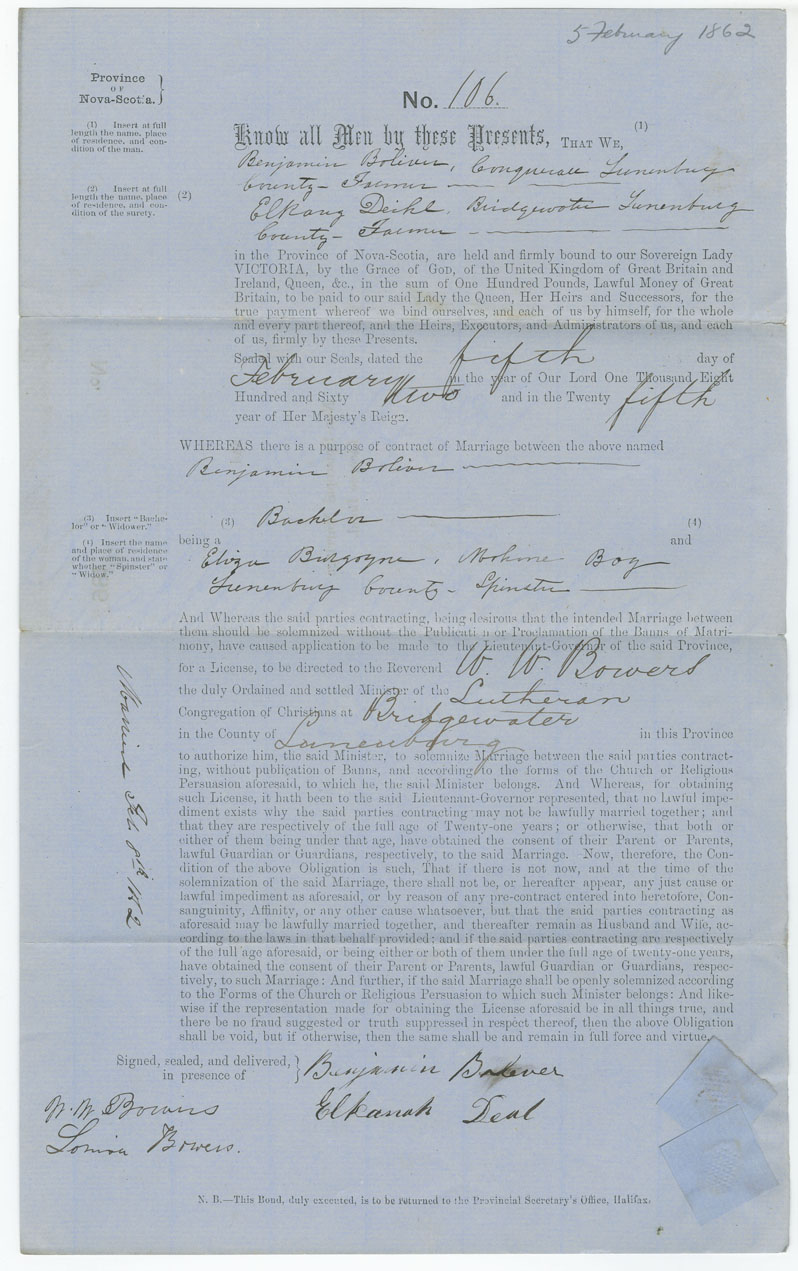 5 February 1862
Province
OF
Nova-Scotia.
No. 106.
(1) Insert at full
length the name, place
of residence, and con-
dition of the man.
Know all Men by these Presents, THAT WE, (1)
Benjamin Boliver, Conquerall Lunenburg
County - Farmer
(2) Insert at full
length the name, place
of residence, and con-
dition of the surety.
(2)
Elkany Deihl. Bridgewater Lunenburg
County - Farmer
in the Province of Nova-Scotia, are held and firmly bound to our Sovereign Lady
VICTORIA, by the Grace of GOD, of the United Kingdom of Great Britain and
Ireland, Queen, &c., in the sum of One Hundred Pounds, Lawful Money of Great
Britain, to be paid to our said Lady the Queen, Her Heirs and Successors, for the
true payment whereof we bind ourselves, and each of us by himself, for the whole
and every part thereof, and the Heirs, Executors, and Administrators of us, and each
of us, firmly by these Presents.
Sealed with our Seals, dated the fifth day of
February in the year of Our Lord One Thousand Eight
Hundred and Sixty two and in the Twenty fifth
year of Her Majesty's Reign.
WHEREAS there is a purpose of contract of Marriage between the above named
Benjamin Boliver
(3) Insert "Bache-
lor" or "Widower."
(3) Bachelor (4)
being a and
(4) Insert the name
and place of residence
of the woman, and state
whether "Spinster" or
"Widow."
Eliza Burgoyne, Mahone Bay
Lunenburg County - Spinster
And Whereas the said parties contracting, being desirous that the intended Marriage between
them should be solemnized without the Publication or Proclamation of the Banns of Matri-
mony, have caused application to be made to the Lieutenant-Governor of the said Province,
for a License, to be directed to the Reverend W. W. Bowers
the duly Ordained and settled Minister of the Lutheran
Congregation of Christians at Bridgewater
in the County of Lunenburg in this Province
to authorize him, the said Minister, to solemnize Marriage between the said parties contract-
ing, without publication of Banns, and according to the forms of the Church or Religious
Persuasion aforesaid, to which he, the said Minister belongs. And Whereas, for obtaining
such License, it hath been to the said Lieutenant-Governor represented, that no lawful impe-
diment exists why the said parties contracting may not be lawfully married together; and
that they are respectively of the full age of Twenty-one years; or otherwise, that both or
either of them being under that age, have obtained the consent of their Parent or Parents,
lawful Guardian or Guardians, respectively, to the said Marriage. Now, therefore, the Con-
dition of the above Obligation is such, That if there is not now, and at the time of the
solemnization of the said Marriage, there shall not be, or hereafter appear, any just cause or
lawful impediment as aforesaid, or by reason of any pre-contract entered into heretofore, Con-
sanguinity, Affinity, or any other cause whatsoever, but that the said parties contracting as
aforesaid may be lawfully married together, and thereafter remain as Husband and Wife, ac-
cording to the laws in that behalf provided: and if the said parties contracting are respectively
of the full age aforesaid, or being either or both of them under the full age of twenty-one years,
have obtained the consent of their Parent or Parents, lawful Guardian or Guardians, respec-
tively, to such Marriage: And further, if the said Marriage shall be openly solemnized according
to the Forms of the Church or Religious Persuasion to which such Minister belongs: And like-
wise if the representation made for obtaining the License aforesaid be in all things true, and
there be no fraud suggested or truth suppressed in respect thereof, then the above Obligation
shall be void, but if otherwise, then the same shall be and remain in full force and virtue.
Married Feb. 8th 1862
Signed, sealed, and delivered,
in presence of
Benjamin Bolever
W. W. Bowers
Elkanah Deal
Louisa Bowers.
N. B.—This Bond, duly executed, is to be returned to the Provincial Secretary's Office, Halifax.